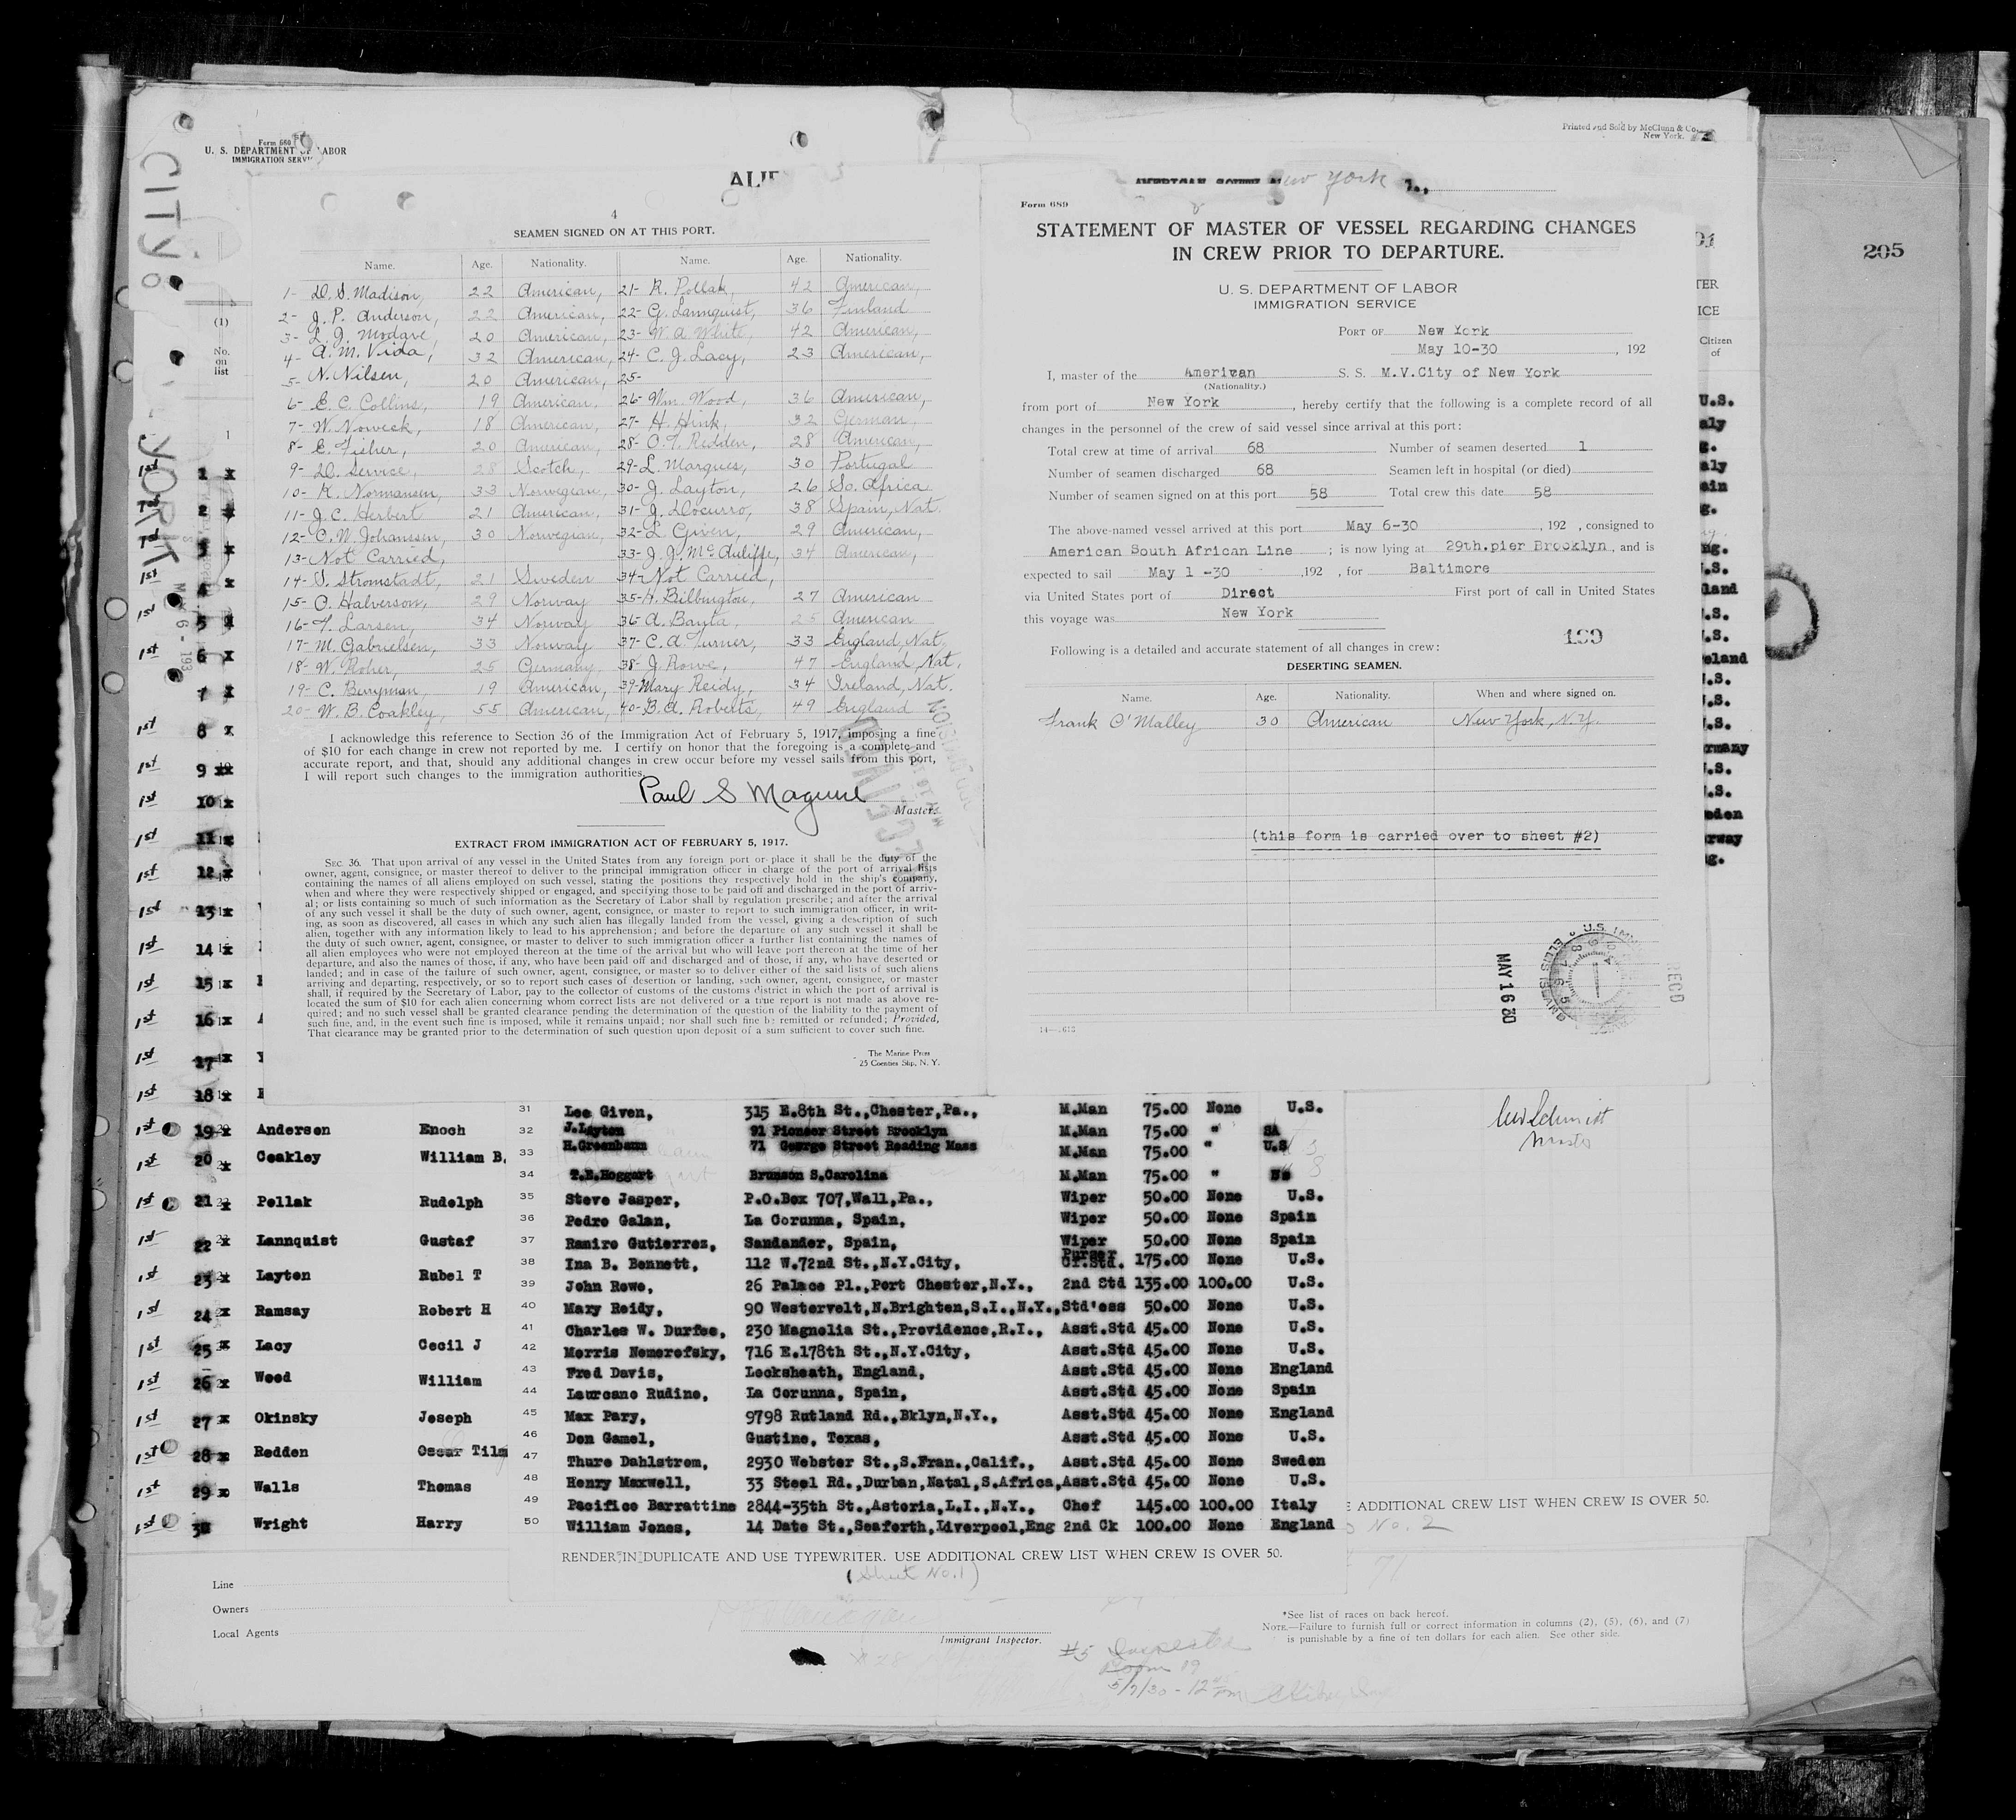 Form 660
U. S. DEPARTMENT OF LABOR
IMMIGRATION SERV
Printed and Sold by McClunn & Co.
New York.
CITY of
YORK
(1)
No.
on
list
205
4
SEAMEN SIGNED ON AT THIS PORT.
Name. Age. Nationality. Name. Age. Nationality.
1- D. S. Madison, 22 American, 21- R. Pollak, 42 American,
2- J. P. Anderson, 22 American, 22- G. Lannquist, 36 Finland
3- L. J. Modave, 20 American, 23- W. A. White, 42 American,
4- A. M. Vida, 32 American, 24- C. J. Lacy, 23 American,
5- N. Nilsen, 20 American, 25-
6- E. C. Collins, 19 American, 26- Wm. Wood, 36 American,
7- W. Noweck, 18 American, 27- H. Hink, 32 German,
8- E. Fisher, 20 American, 28- O. T. Redden, 28 American,
9- D. Service, 28 Scotch, 29- L. Marques, 30 Portugal
10- K. Normansen, 33 Norwegian, 30- J. Layton, 26 So. Africa
11- J. C. Herbert 21 American, 31- J. Docurro, 38 Spain, Nat.
12- C. W. Johansen, 30 Norwegian, 32- L. Given, 29 American,
13- Not Carried, 33- J. J. McAuliffe, 34 American,
14- S. Stromstadt, 21 Sweden 34- Not Carried,
15- O. Halverson, 29 Norway 35- H. Bilbington, 27 American
16- T. Larsen, 34 Norway 36- A. Banta, 25 American
17- M. Gabrielsen, 33 Norway 37- C. A. Turner, 33 England, Nat.
18- W. Roher, 25 Germany 38- J. Rowe, 47 England, Nat.
19- C. Berryman, 19 American, 39- Mary Reidy, 34 Ireland, Nat.
20- W. B. Coakley, 55 American, 40- B. A. Roberts, 49 England
I acknowledge this reference to Section 36 of the Immigration Act of February 5, 1917, imposing a fine
of $10 for each change in crew not reported by me. I certify on honor that the foregoing is a complete and
accurate report, and that, should any additional changes in crew occur before my vessel sails from this port,
I will report such changes to the immigration authorities.
Paul S Maguire
Master.
EXTRACT FROM IMMIGRATION ACT OF FEBRUARY 5, 1917.
SEC. 36. That upon arrival of any vessel in the United States from any foreign port or place it shall be the duty of the
owner, agent, consignee, or master thereof to deliver to the principal immigration officer in charge of the port of arrival lists
containing the names of all aliens employed on such vessel, stating the positions they respectively hold in the ship's company,
when and where they were respectively shipped or engaged, and specifying those to be paid off and discharged in the port of arriv-
al; or lists containing so much of such information as the Secretary of Labor shall by regulation prescribe; and after the arrival
of any such vessel it shall be the duty of such owner, agent, consignee, or master to report to such immigration officer, in writ-
ing, as soon as discovered, all cases in which any such alien has illegally landed from the vessel, giving a description of such
alien, together with any information likely to lead to his apprehension; and before the departure of any such vessel it shall be
the duty of such owner, agent, consignee, or master to deliver to such immigration officer a further list containing the names of
all alien employees who were not employed thereon at the time of the arrival but who will leave port thereon at the time of her
departure, and also the names of those, if any, who have been paid off and discharged and of those, if any, who have deserted or
landed; and in case of the failure of such owner, agent, consignee, or master so to deliver either of the said lists of such aliens
arriving and departing, respectively, or so to report such cases of desertion or landing, such owner, agent, consignee, or master
shall, if required by the Secretary of Labor, pay to the collector of customs of the customs district in which the port of arrival is
located the sum of $10 for each alien concerning whom correct lists are not delivered or a true report is not made as above re-
quired; and no such vessel shall be granted clearance pending the determination of the question of the liability to the payment of
such fine, and, in the event such fine is imposed, while it remains unpaid; nor shall such fine be remitted or refunded; Provided,
That clearance may be granted prior to the determination of such question upon deposit of a sum sufficient to cover such fine.
The Marine Press
25 Coenties Slip, N. Y.
New York
Form 689
STATEMENT OF MASTER OF VESSEL REGARDING CHANGES
IN CREW PRIOR TO DEPARTURE.
U. S. DEPARTMENT OF LABOR
IMMIGRATION SERVICE
PORT OF New York
May 10-30, 192
I, master of the American S. S. M.V.City of New York
(Nationality.)
from port of New York, hereby certify that the following is a complete record of all
changes in the personnel of the crew of said vessel since arrival at this port:
Total crew at time of arrival 68 Number of seamen deserted 1
Number of seamen discharged 68 Seamen left in hospital (or died)
Number of seamen signed on at this port 58 Total crew this date 58
The above-named vessel arrived at this port May 6-30, 192 , consigned to
American South African Line ; is now lying at 29th.pier Brooklyn, and is
expected to sail May 1 -30 ,192 , for Baltimore
via United States port of Direct First port of call in United States
this voyage was New York
199
Following is a detailed and accurate statement of all changes in crew:
DESERTING SEAMEN.
Name. Age. Nationality. When and where signed on.
Frank O'Malley 30 American New York, N.Y.
(this form is carried over to sheet #2)
MAY 16 30
RECD
31 Lee Given, 315 E.8th St.,Chester,Pa., M.Man 75.00 None U.S.
32 J.Layton 91 Pioneer Street Brooklyn M.Man 75.00 " SA
33 H.Greenbaum 71 George Street Reading Mass M.Man 75.00 " U.S
34 T.E.Hoggart Brunson S.Carolina M.Man 75.00 "
35 Steve Jasper, P.O.Box 707,Wall,Pa., Wiper 50.00 None U.S.
36 Pedro Galan, La Corunna, Spain, Wiper 50.00 None Spain
37 Ramiro Gutierrez, Sandander, Spain, Wiper 50.00 None Spain
38 Ina B. Bennett, 112 W.72nd St.,N.Y.City, Purser Cf.Std. 175.00 None U.S.
39 John Rowe, 26 Palace Pl.,Port Chester,N.Y., 2nd Std 135.00 100.00 U.S.
40 Mary Reidy, 90 Westervelt,N.Brighten,S.I.,N.Y.,Std'ess 50.00 None U.S.
41 Charles W. Durfee, 230 Magnolia St.,Providence,R.I., Asst.Std 45.00 None U.S.
42 Morris Nemerofsky, 716 E.178th St.,N.Y.City, Asst.Std 45.00 None U.S.
43 Fred Davis, Locksheath, England, Asst.Std 45.00 None England
44 Laureano Rudino, La Corunna, Spain, Asst.Std 45.00 None Spain
45 Max Pary, 9798 Rutland Rd.,Bklyn,N.Y., Asst.Std 45.00 None England
46 Don Gamel, Gustine, Texas, Asst.Std 45.00 None U.S.
47 Thure Dahlstrom, 2930 Webster St.,S.Fran.,Calif., Asst.Std 45.00 None Sweden
48 Henry Maxwell, 33 Steel Rd.,Durban,Natal,S.Africa,Asst.Std 45.00 None U.S.
49 Pacifico Barrattino 2844-35th St.,Astoria,L.I.,N.Y., Chef 145.00 100.00 Italy
50 William Jones, 14 Date St.,Seaforth,Liverpool,Eng 2nd Ck 100.00 None England
RENDER IN DUPLICATE AND USE TYPEWRITER. USE ADDITIONAL CREW LIST WHEN CREW IS OVER 50.
(Sheet No.1)
1st 19 x Andersen Enoch
1st 20 x Coakley William B.
1st 21 x Pollak Rudolph
1st 22 x Lannquist Gustaf
1st 23 x Layton Rubel T
1st 24 x Ramsay Robert H
1st 25 x Lacy Cecil J
1st 26 x Wood William
1st 27 x Okinsky Joseph
1st 28 x Redden Oscar Tilm
1st 29 x Walls Thomas
1st Wright Harry
Master
ADDITIONAL CREW LIST WHEN CREW IS OVER 50.
No. 2
71
Line
Owners
Local Agents
Immigrant Inspector.
*See list of races on back hereof.
NOTE.—Failure to furnish full or correct information in columns (2), (5), (6), and (7)
is punishable by a fine of ten dollars for each alien. See other side.
#5 Inspected
Room 19
5/7/30 - 12